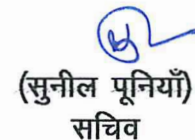 (सुनील पूनियाँ)
सचिव